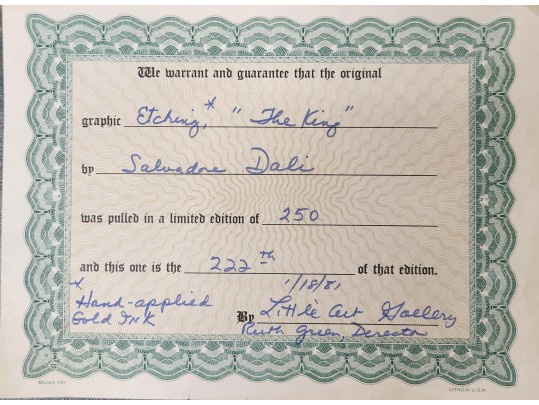 We warrant and guarantee that the original
graphic Etching,* "The King"
by Salvadore Dali
was pulled in a limited edition of 250
and this one is the 222th of that edition.
1/18/81
* Hand-applied
Gold Ink
By Little Art Gallery
Ruth Green, Director
LITHO IN U.S.A.